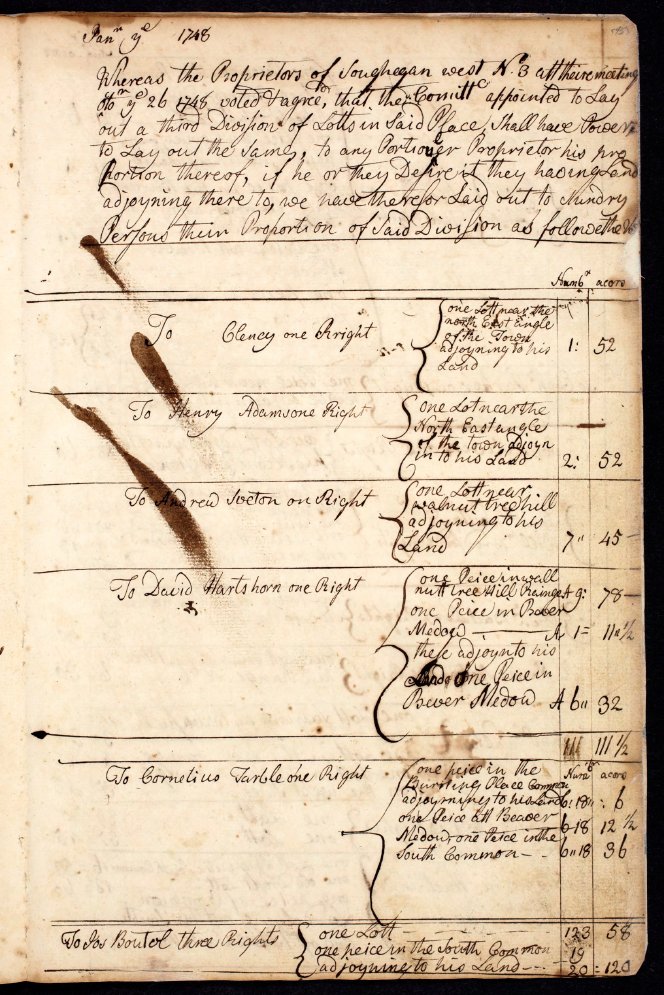 Janry ye 1748
Whereas the Proprietors of Souhegan west No 3 att theire meeting
ye 26 1748 voted & agree, that the Comitte appointed to Lay
out a third Division of Lotts in Said Place Shall have Power
to Lay out the Same, to any Proprietor his pro
portion thereof, if he or they Desire it they having Land
adjoyning there to, we have therefor Laid out to Sundry
Persons their Proportion of Said Division as followeth
Numbr acors
To Cleney one Rright
one Lott near the
north East angle
of the Town
adjoyning to his
Land
1: 52
To Henry Adams one Right
one Lot near the
North East angle
of the town adjoyn
in to his Land
2: 52
To Andrew on Right
one Lott near
walnut tree hill
adjoyning to his
Land
7" 45
To David Harts horn one Right
one Peice in wall
nutt tree Hill Rainge A 9: 78
one Peice in Bever
Medow A 1= 11"½
these adjoyn to his
Land one Peice in
Bever Medow A 6" 32
111 111½
Numbr acors
To Cornelius Tarble one Right
one peice in the
Burning Place Common
adjoyrning to his Land 6:18": 6
one Peice att Beaver
Medow one Peice in the 6-18 12½
South Common - - 6"18 36
To Boutel three Rights
one Lott 123 58
one peice in the South Common 19
adjoyning to his Land - - - 20=120